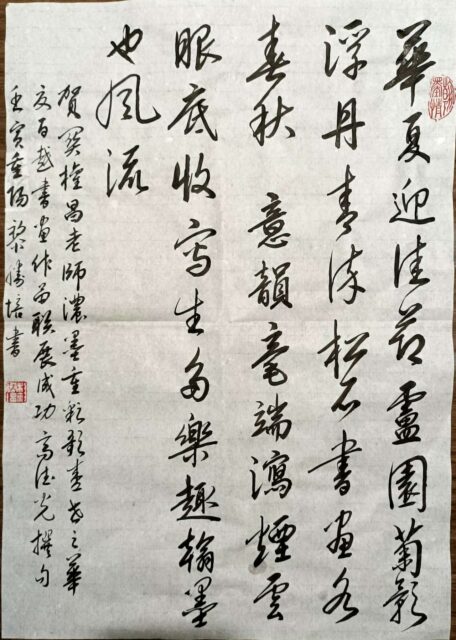 華夏迎佳節盧園菊影
浮丹青詠松石書畫各
春秋 意韻毫端瀉煙雲
眼底收寫生多樂趣翰墨
也風流
賀昌老師濃墨重彩之華
百越書畫作品聯展成功 高德光撰句
壬寅重陽黎勝培書